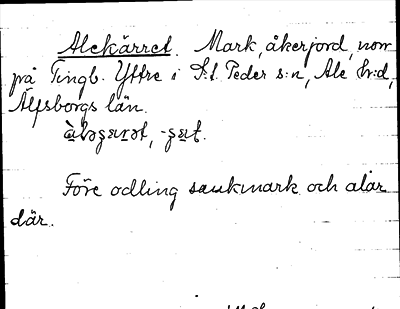 Alekärret. Mark, åkerjord, norr
på Tingb. Yttre i S:t Peder s:n, Ale hr:d,
Älfsborgs län.
Före odling sankmark och alar
där.